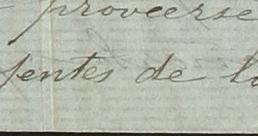 proveerse
entes de l